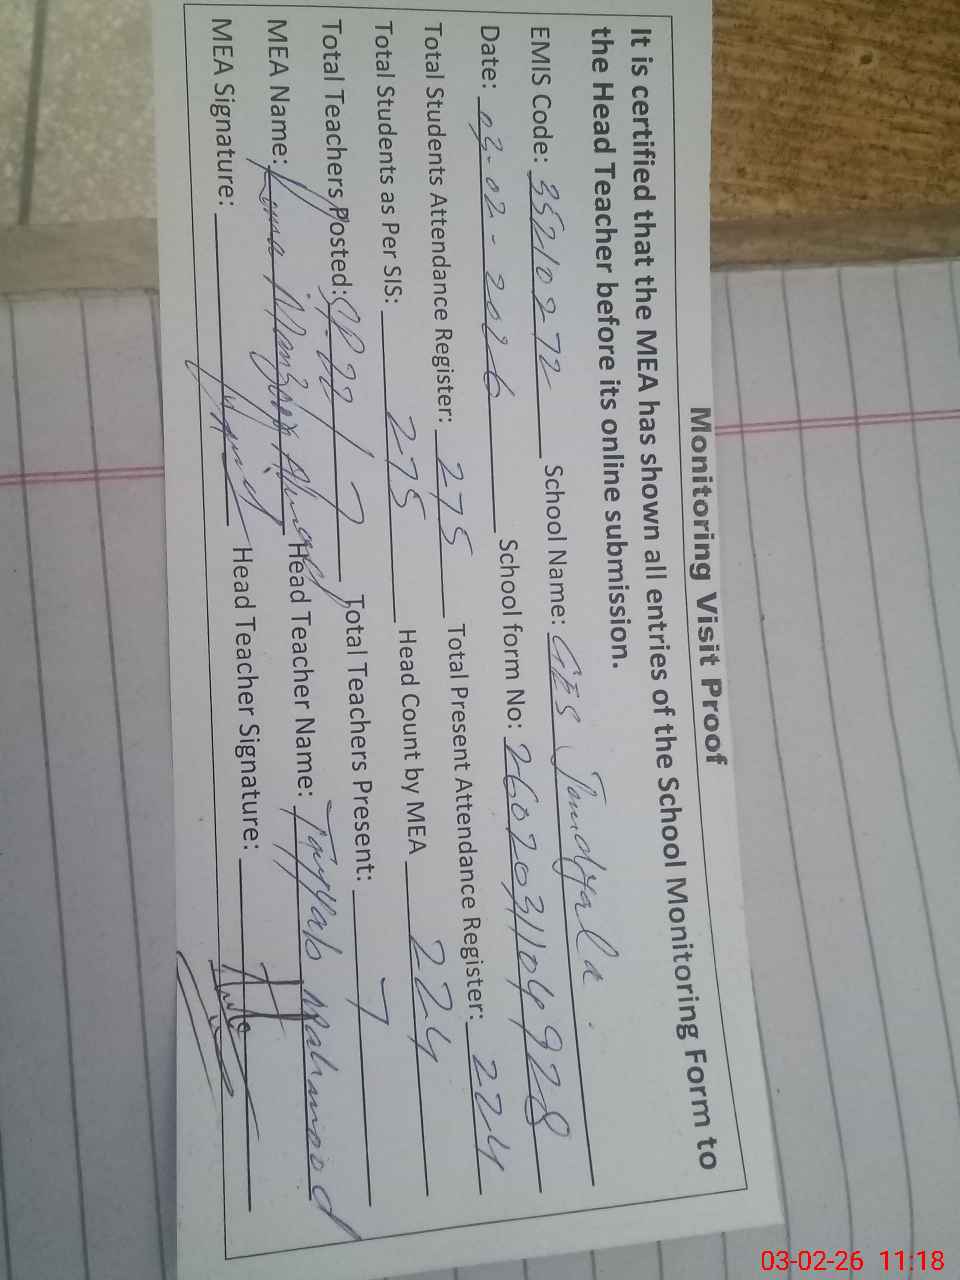 Monitoring Visit Proof
It is certified that the MEA has shown all entries of the School Monitoring Form to
the Head Teacher before its online submission.
EMIS Code: 35210272 School Name: GES Jandyala
Date: 03-02-2026 School form No: 2602031104928
Total Students Attendance Register: 275 Total Present Attendance Register: 224
Total Students as Per SIS: 275 Head Count by MEA 224
Total Teachers Posted: 7 Total Teachers Present: 7
MEA Name: Rana Manzoor Ahmed Head Teacher Name: Tayyab Mahmood
MEA Signature: Head Teacher Signature:
03-02-26 11:18